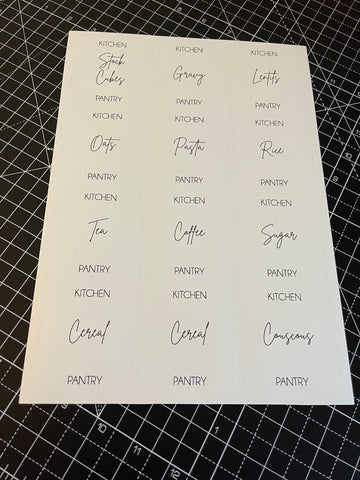 KITCHEN KITCHEN KITCHEN
Stock
Cubes Gravy Lentils
PANTRY PANTRY PANTRY
KITCHEN KITCHEN KITCHEN
Oats Pasta Rice
PANTRY PANTRY PANTRY
KITCHEN KITCHEN KITCHEN
Tea Coffee Sugar
PANTRY PANTRY PANTRY
KITCHEN KITCHEN KITCHEN
Cereal Cereal Couscous
PANTRY PANTRY PANTRY